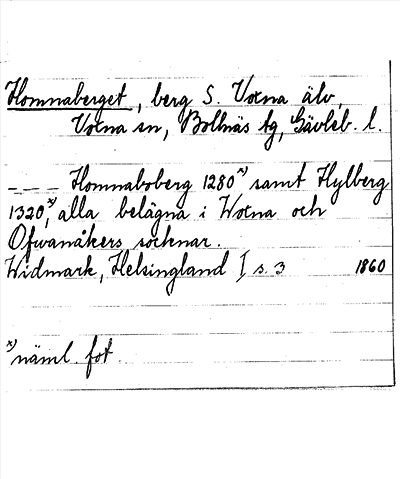 Homnaberget, berg S. Voxna älv,
Voxna sn, Bollnäs tg, Gävleb. l.
--- Homnaboberg 1280 x) samt Hylberg
1320 x), alla belägna i Woxna och
Ofwanåkers socknar.
Widmark, Helsingland I s. 3 1860
x) näml. fot